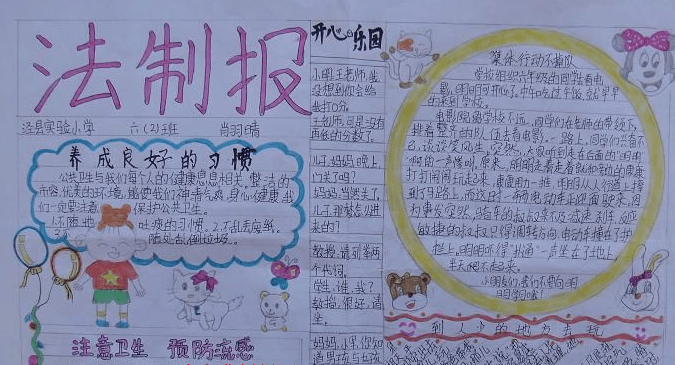 法制报
泾县实验小学 六(2)班 肖羽晴
养成良好的习惯
公共卫生与我们每个人的健康息息相关。整洁的
市容,优美的环境,能使我们精神气爽,身心健康。我
们一定要注意 保护公共卫生。
1.不随地 吐痰的习惯。2.不乱丢废纸。
3.不 随处乱倒垃圾。
注意卫生 预防流感
开心乐园
小明:王老师,我
没想到你会给
我打0分。
王老师:可是没有
再低的分数了。
儿:妈妈,晚上
门关了吗?
妈妈:当然关了。
儿:那梦怎么进
来的?
教授:请列举两
个代词。
学生:谁,我?
教授:很好,请
坐。
妈妈:小军,你知
道男孩与女孩
集体行动不掉队
学校组织六年级的同学看电
影,明明可开心了。中午吃过午饭,就早早
的来到学校。
电影院离学校不远,同学们在老师的带领下,
排着整齐的队伍去看电影。一路上,同学们兴奋不
已,谈谈笑风生。突然,大家听到走在后面的"明明"
"啊"的一声惨叫。原来,明明走着走着就和旁边的康康
打打闹闹玩起来,康康用力一推,明明从人行道上摔
到了马路上,而这时一辆电动车正迎面驶来,因
为事发突然,骑车的叔叔来不及减速刹车,反应
敏捷的叔叔只得调转方向,电动车撞在了护
栏上。明明吓得"扑通"一声坐在了地上,
半天爬不起来。
小朋友们,我们不要向明
明学习哦!
到人少的地方去玩